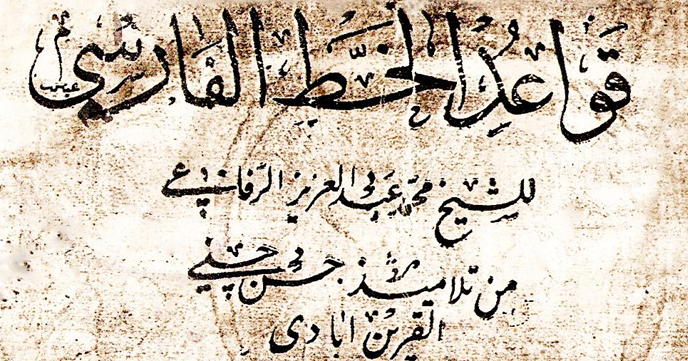 قَوَاعِدُ الخَطِّ الفَارسِى
للشيخ محمد عبد العزيز الرفاعي
من تلاميذ حسن حسني
القرين ابادى